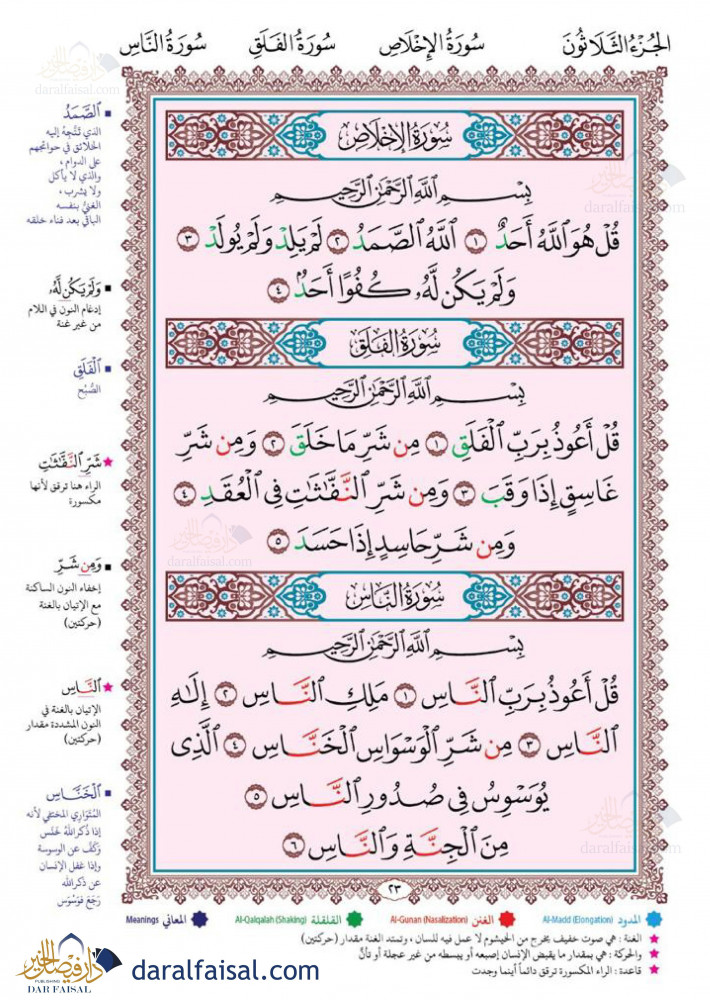 الجزء الثلاثون سورة الإخلاص سورة الفلق سورة الناس
سُورَةُ الإِخْلَاصِ
بِسْمِ ٱللَّهِ ٱلرَّحْمَٰنِ ٱلرَّحِيمِ
قُلْ هُوَ ٱللَّهُ أَحَدٌ ١ ٱللَّهُ ٱلصَّمَدُ ٢ لَمْ يَلِدْ وَلَمْ يُولَدْ ٣
وَلَمْ يَكُن لَّهُۥ كُفُوًا أَحَدٌۢ ٤
سُورَةُ الفَلَقِ
بِسْمِ ٱللَّهِ ٱلرَّحْمَٰنِ ٱلرَّحِيمِ
قُلْ أَعُوذُ بِرَبِّ ٱلْفَلَقِ ١ مِن شَرِّ مَا خَلَقَ ٢ وَمِن شَرِّ
غَاسِقٍ إِذَا وَقَبَ ٣ وَمِن شَرِّ ٱلنَّفَّٰثَٰتِ فِى ٱلْعُقَدِ ٤
وَمِن شَرِّ حَاسِدٍ إِذَا حَسَدَ ٥
سُورَةُ النَّاسِ
بِسْمِ ٱللَّهِ ٱلرَّحْمَٰنِ ٱلرَّحِيمِ
قُلْ أَعُوذُ بِرَبِّ ٱلنَّاسِ ١ مَلِكِ ٱلنَّاسِ ٢ إِلَٰهِ
ٱلنَّاسِ ٣ مِن شَرِّ ٱلْوَسْوَاسِ ٱلْخَنَّاسِ ٤ ٱلَّذِى
يُوَسْوِسُ فِى صُدُورِ ٱلنَّاسِ ٥
مِنَ ٱلْجِنَّةِ وَٱلنَّاسِ ٦
٢٣
ٱلصَّمَدُ
الذي تَتَّجِهُ إليه
الخلائق في حوائجهم
على الدوام ،
والذي لا يأكل
ولا يشرب ،
الغنيُّ بنفسه
الباقي بعد فناء خلقه
وَلَمْ يَكُن لَّهُۥ
إدغام النون في اللام
من غير غنة
ٱلْفَلَقِ
الصُّبْح
شَرِّ ٱلنَّفَّٰثَٰتِ
الراء هنا ترقق لأنها
مكسورة
وَمِن شَرِّ
إخفاء النون الساكنة
مع الإتيان بالغنة
(حركتين)
ٱلنَّاسِ
الإتيان بالغنة في
النون المشددة مقدار
(حركتين)
ٱلْخَنَّاسِ
المُتَوَارِي المختفي لأنه
إذا ذُكر اللهُ خَنَس
وَكَفَّ عن الوسوسة
وإذا غفل الإنسان
عن ذكر الله
رَجَعَ فَوَسْوَسَ
المدود Al-Madd (Elongation) الغنن Al-Gunan (Nasalization) القلقلة Al-Qalqalah (Shaking) المعاني Meanings
الغنة : هي صوت خفيف يخرج من الخيشوم لا عمل فيه للسان ، وتمتد الغنة مقدار (حركتين)
والحركة : هي بمقدار ما يقبض الإنسان إصبعه أو يبسطه من غير عجلة أو تأنٍّ
قاعدة : الراء المكسورة ترقق دائماً أينما وجدت
دار فيصل الخير
PUBLISHING
DAR FAISAL
daralfaisal.com
دار فيصل الخير
daralfaisal.com
daralfaisal.com
daralfaisal.com
daralfaisal.com